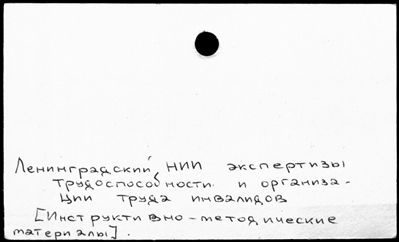 Ленинградский НИИ экспертизы
трудоспособности и организа-
ции труда инвалидов
[Инструктивно-методические
материалы].